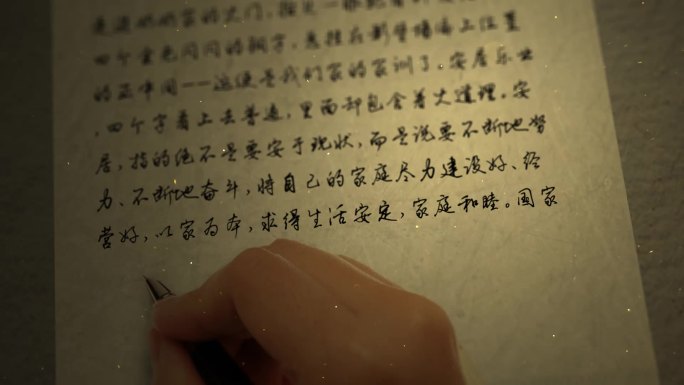 是进奶奶家的大门,
四个金色闪闪的铜字,悬挂在影壁墙海上位置
的正中间——这便是我们家的家训了。安居乐业
,四个字看上去普通,里面却包含着大道理。安
居,指的绝不是要安于现状,而是说要不断地努
力、不断地奋斗,将自己的家庭尽力建设好、经
营好,以家为本,求得生活安定,家庭和睦。国家